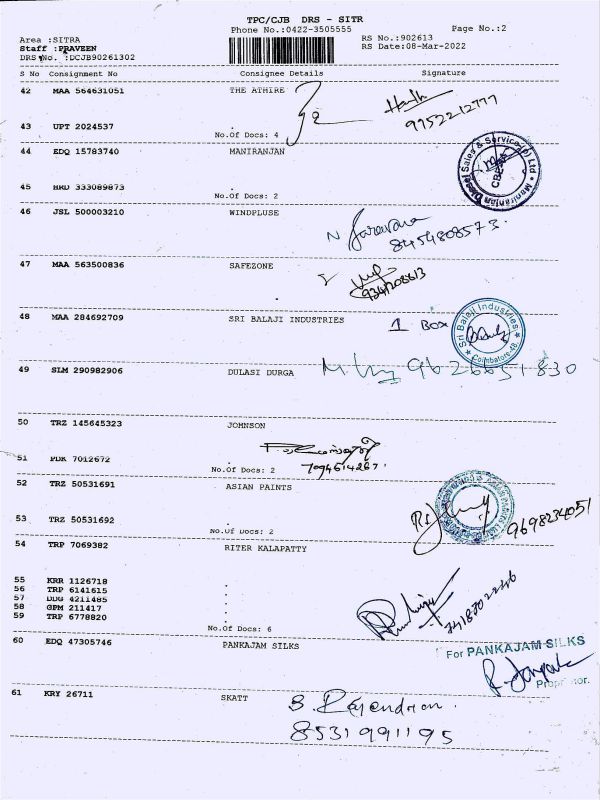 TPC/CJB DRS - SITR
Phone No.:0422-3505555
Page No.:2
Area :SITRA
RS No.:902613
Staff :PRAVEEN
RS Date:08-Mar-2022
DRS No. :DCJB90261302
S No Consignment No Consignee Details Signature
42 MAA 564631051 THE ATHIRE
9952212777
43 UPT 2024537
No.Of Docs: 4
44 EDQ 15783740 MANIRANJAN
Maniranjan Diesel Sales & Service (P) Ltd
CBE
45 HRD 333089873
No.Of Docs: 2
46 JSL 500003210 WINDPLUSE
8454808573.
47 MAA 563500836 SAFEZONE
48 MAA 284692709 SRI BALAJI INDUSTRIES 1 Box
Sri Balaji Industries
Coimbatore-48
49 SLM 290982906 DULASI DURGA
9626651830
50 TRZ 145645323 JOHNSON
51 PDK 7012672
No.Of Docs: 2
7094614267.
52 TRZ 50531691 ASIAN PAINTS
9698234051
53 TRZ 50531692
No.Of Docs: 2
54 TRP 7069382 RITER KALAPATTY
55 KRR 1126718
56 TRP 6141615
57 DDG 4211485
58 GPM 211417
59 TRP 6778820
No.Of Docs: 6
60 EDQ 47305746 PANKAJAM SILKS
For PANKAJAM SILKS
61 KRY 26711 SKATT
B. Rajendran.
8531991195